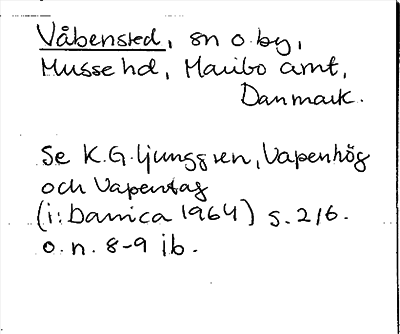 Våbensted, sn o. by,
Musse hd, Maribo amt,
Danmark.
Se K.G. Ljunggren, Vapenhög
och Vapentag
(i: Danica 1964) s. 216.
o. n. 8-9 ib.